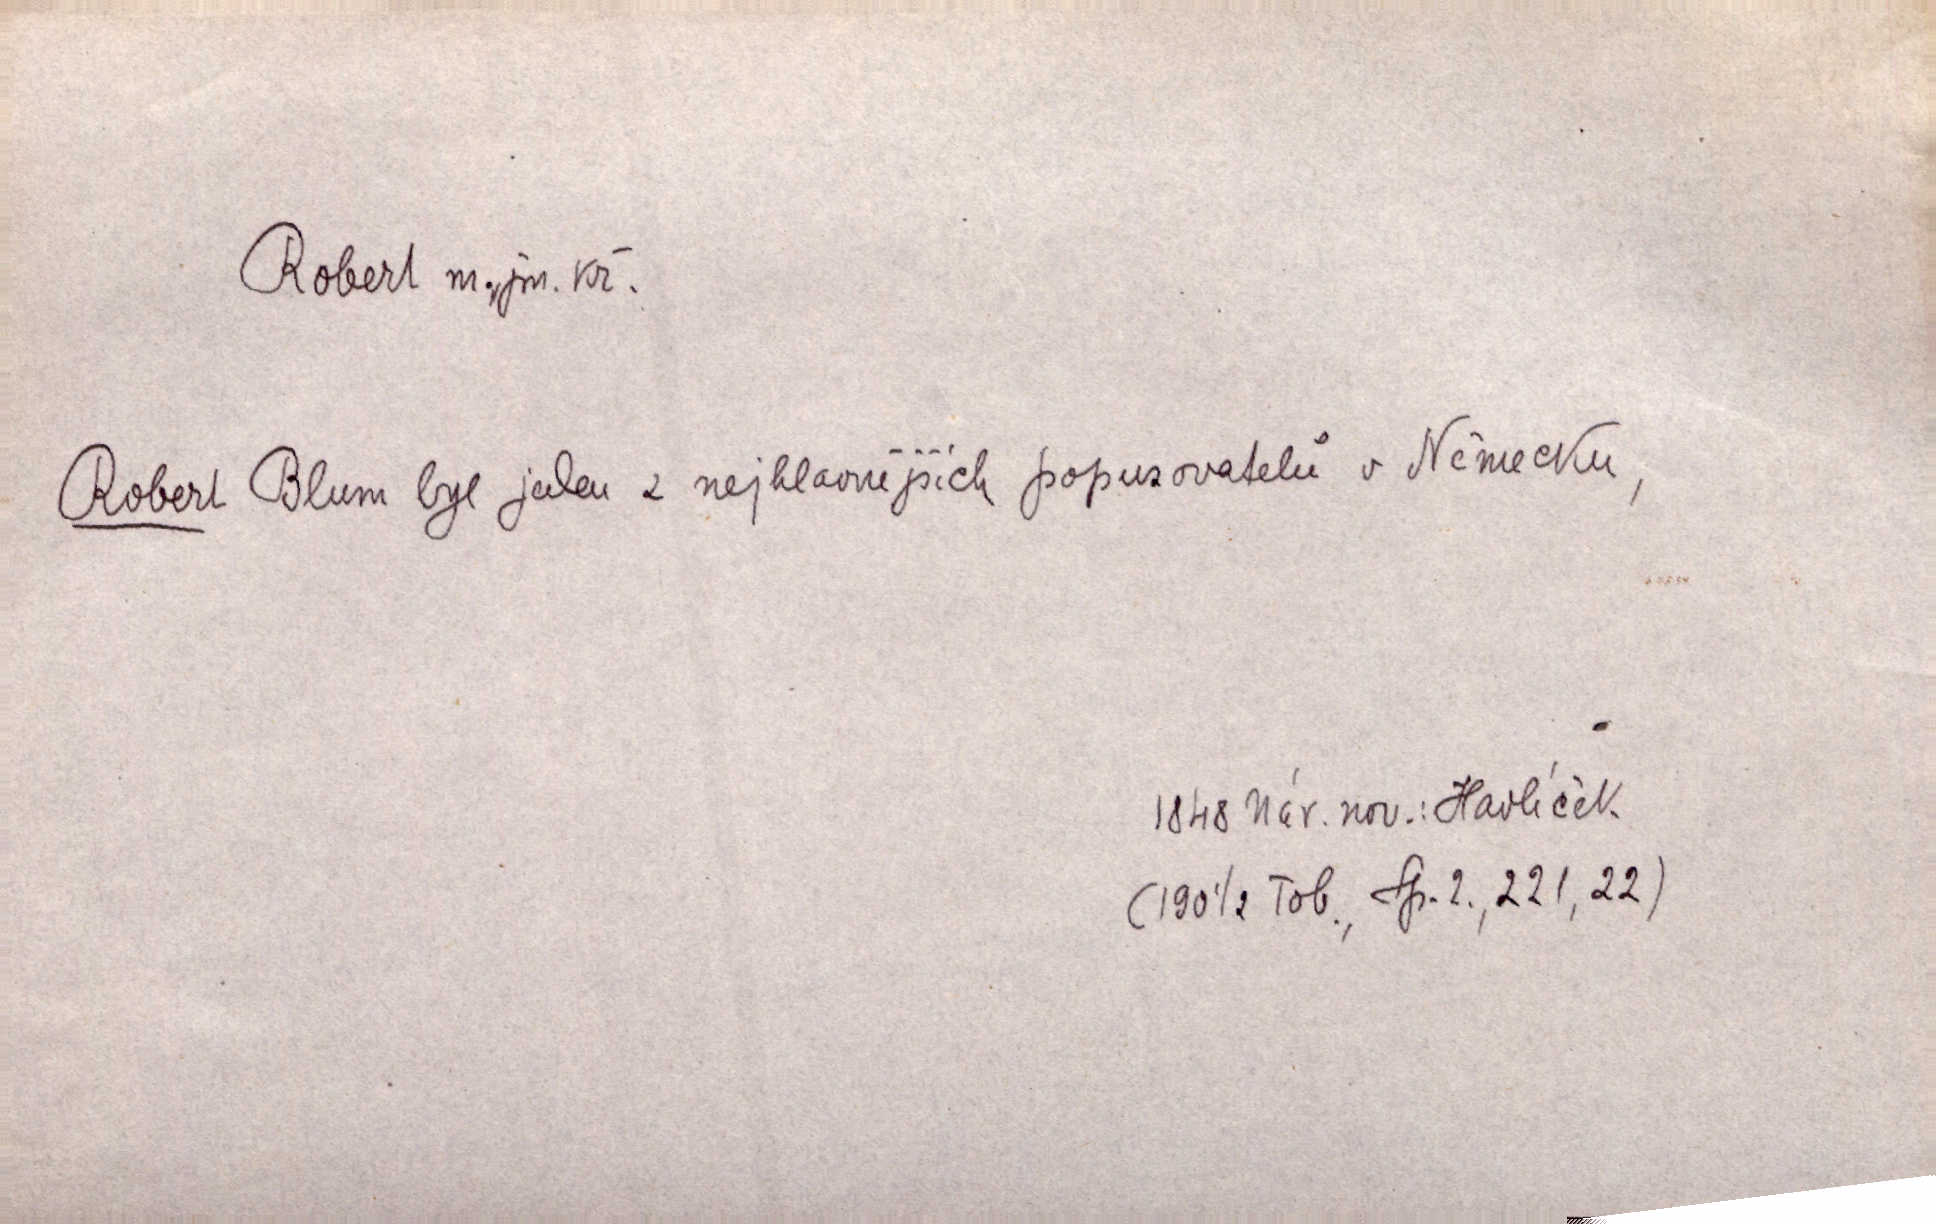 Robert m., jm. kř.
Robert Blum byl jeden z nejhlavnějších popuzovatelů v Německu,
1848 Nár. nov.: Havlíček
(190½ Tob., Sp. 2., 221, 22)